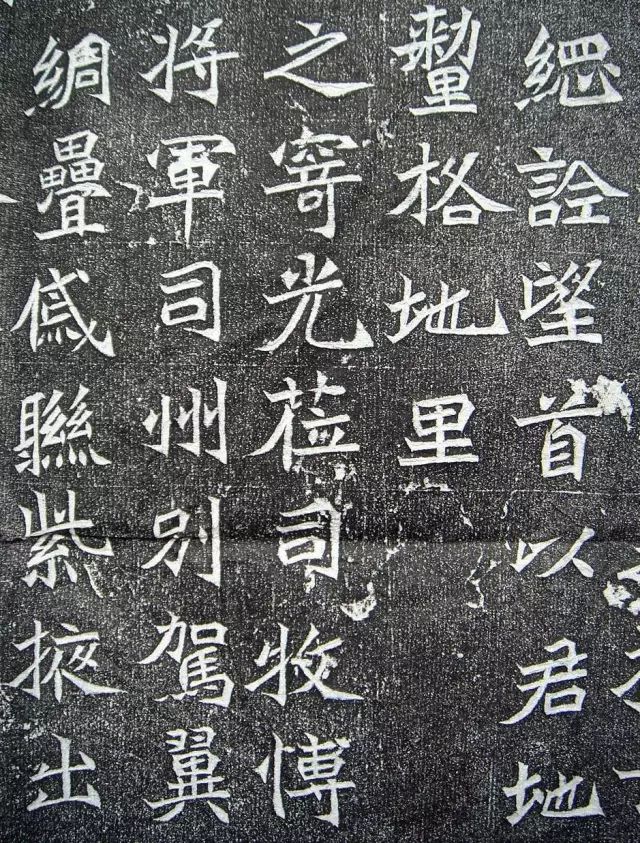 緫詮望首以君地
釐格地里
之寄光莅司牧愽
將軍司州別駕翼
綢疊戚聯紫掖出